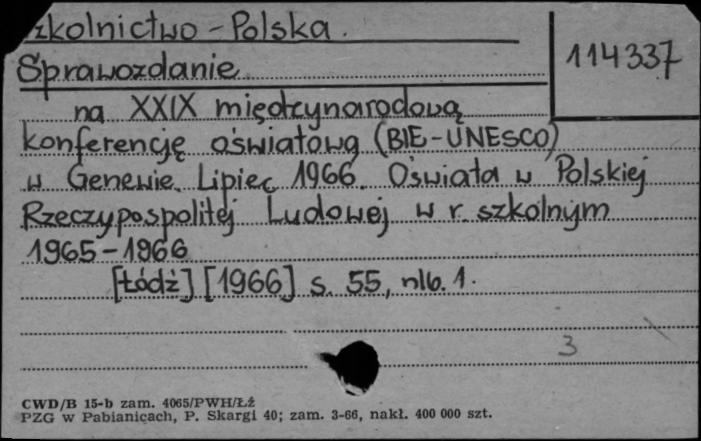 zkolnictwo - Polska.
114337
Sprawozdanie
na XXIX międzynarodową
konferencję oświatową (BIE-UNESCO)
w Genewie. Lipiec 1966. Oświata w Polskiej
Rzeczypospolitej Ludowej w r. szkolnym
1965-1966
[Łódź] [1966] s. 55, nlb. 1.
3
CWD/B 15-b zam. 4065/PWH/Łż
PZG w Pabianicach, P. Skargi 40; zam. 3-66, nakł. 400 000 szt.